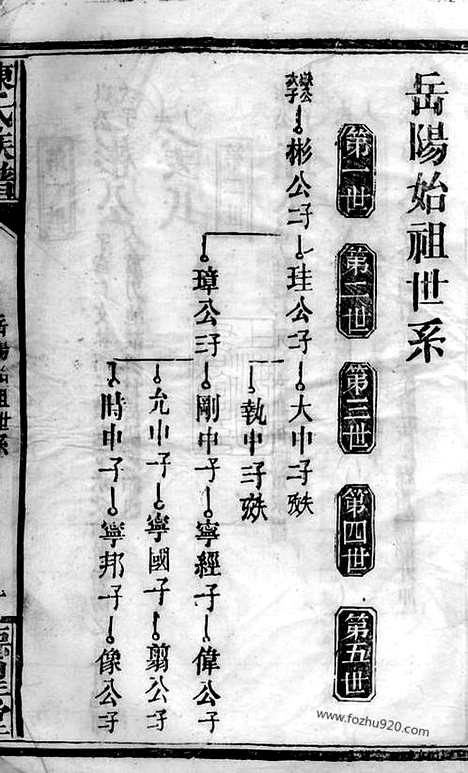 岳陽始祖世系
第一世
第二世
第三世
第四世
第五世
彬公二子
珪公二子
大中子
執中子
璋公三子
剛中子
寧經子
偉公子
允中子
寧國子
翦公子
時中子
寧邦子
像公子
岳陽始祖世系
www.fozhu920.com